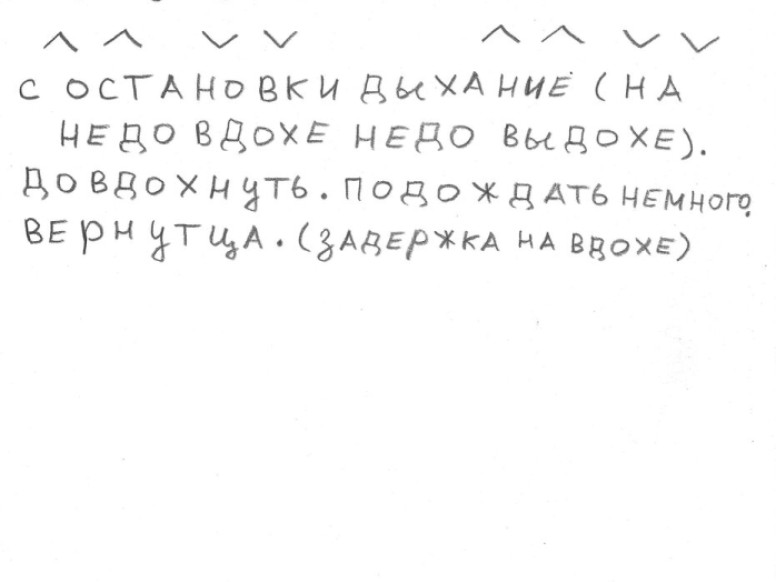 С ОСТАНОВКИ ДЫХАНИЕ (НА
НЕДО ВДОХЕ НЕДО ВЫДОХЕ).
ДОВДОХНУТЬ. ПОДОЖДАТЬ НЕМНОГО.
ВЕРНУТЦА. (ЗАДЕРЖКА НА ВДОХЕ)